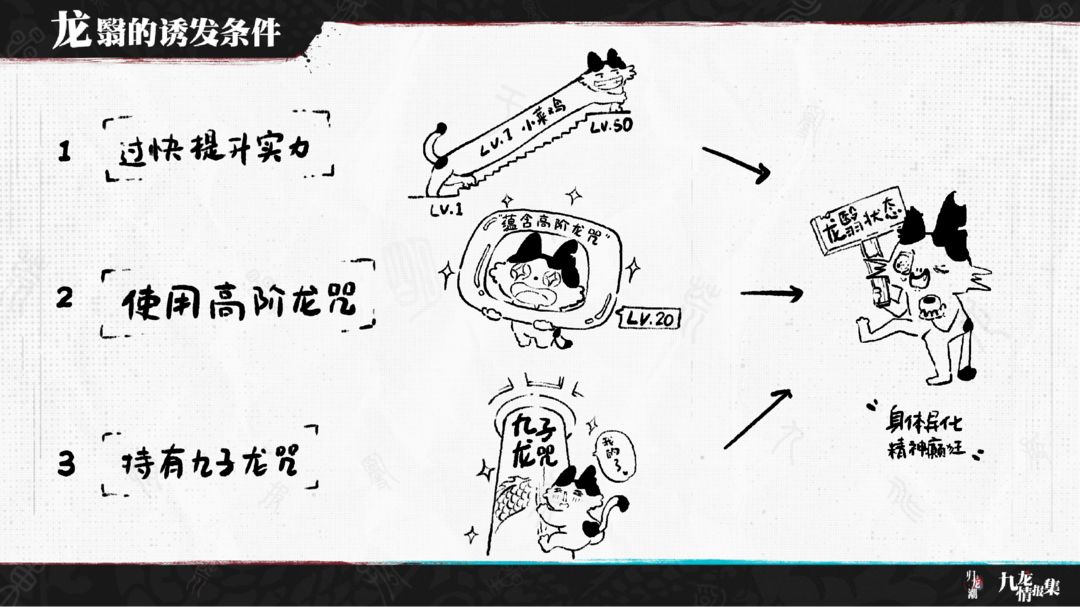 龙翳的诱发条件
1 过快提升实力
LV.1 小菜鸡
LV.50
LV.1
2 使用高阶龙咒
"蕴含高阶龙咒"
LV.20
3 持有九子龙咒
九子
龙咒
我的了
龙翳状态
"身体异化
精神癫狂"
归龙潮
九龙
情报集